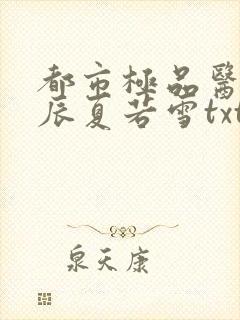 都市極品醫
辰夏若雪txt
泉天康